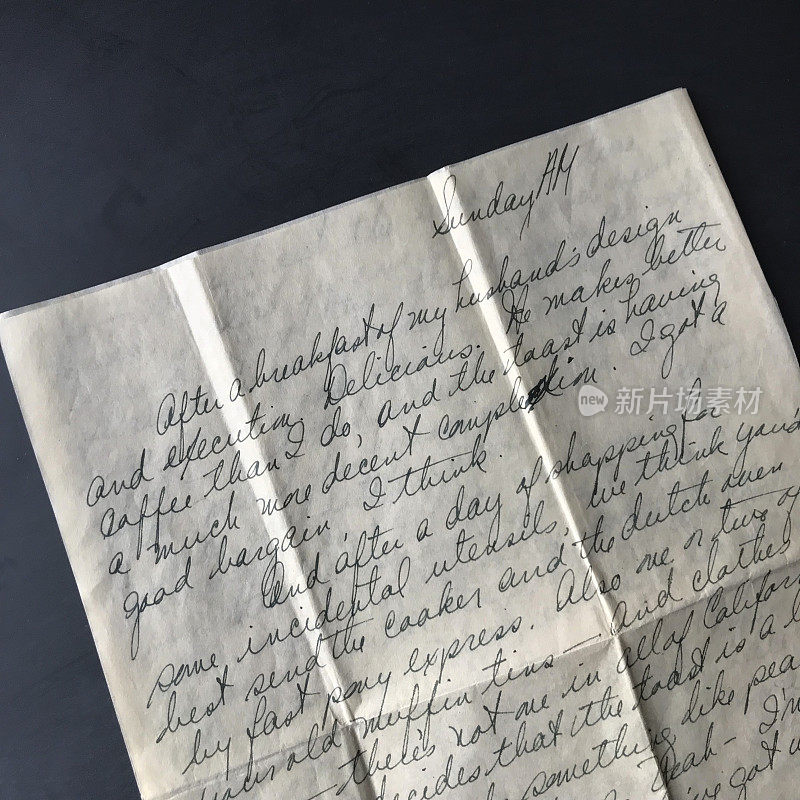 Sunday AM
After a breakfast of my husband's design
and execution. Delicious. He makes better
coffee than I do, and the toast is having
a much more decent complection. I got a
good bargain I think.
And after a day of shopping for
some incidental utensils, we think you'd
best send the cooker and the dutch oven
by fast pony express. Also one or two of
your old muffin tins — and clothes
— there's not one in all of Californ
decides that the toast is a l
something like pea
Yeah - I'm
I've got
new 新片场素材